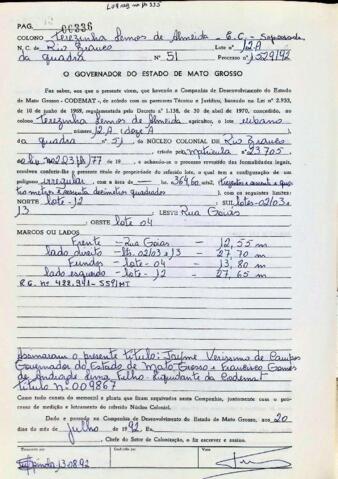 PAG. 00336
COLONO Terezinha Lemos de Almeida - E.C. - Separada
N. C. de Rio Branco Lote nº 12A
da quadra Nº 51 Processo nº 1529/92
O GOVERNADOR DO ESTADO DE MATO GROSSO
Faz saber, aos que a presente virem, que havendo a Companhia de Desenvolvimento do Estado
de Mato Grosso - CODEMAT -, de acôrdo com os pareceres Técnico e Jurídico, baseada na Lei nº 2.933,
10 de junho de 1969, regulamentada pelo Decreto nº 1.138, de 30 de abril de 1970, concedido, ao
colono Terezinha Lemos de Almeida, agricultor, o lote urbano
número 12.A (doze A
da quadra 51 DO NÚCLEO COLONIAL DE Rio Branco
criado pela matrícula nº 23.705
77 de 19 e achando-se o presente revestido das formalidades legais,
resolveu conferir-lhe o presente título de propriedade do referido lote, o qual tem a configuração de um
polígono irregular, com a área de 364,60 m2
metros e sessenta decímetros quadrados) com os seguintes limites:
NORTE lote-12 SUL lote-02/03 e
13 LESTE Rua Goiás
OESTE lote 04
MARCOS OU LADOS
Frente - Rua Goiás - 12,55 m
lado direito - lts. 02/03 e 13 - 27,70 m
Fundos - lote-04 - 13,80 m
lado esquerdo - lote-12 - 27,65 m
R.G. nº 422.941-SSP/MT
Assinaram o presente título: Jayme Veríssimo de Campos
Governador do Estado de Mato Grosso e Francisco Gomes
de Andrade Lima Filho - Liquidante da Codemat
título nº 009867
Como tudo consta do memorial e planta que ficam arquivados nesta Companhia, juntamente com o processo
de medição e letramento do referido Núcleo Colonial.
Dado e passado na Companhia de Desenvolvimento do Estado de Mato Grosso, aos 20
dias do mês de julho de 1992. Eu,
Chefe do Setor de Colonização, o fiz escrever e assino.
Visto
13.08.92